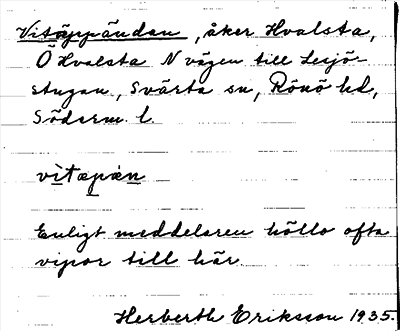 Vitäppändan, åker Hvalsta,
Ö Hvalsta N vägen till Lesjö-
stugan, Svärta sn, Rönö hd,
Söderm. l.
vìtæpæ̀n
Enligt meddelaren höllo ofta
vipor till här.
Herberth Eriksson 1935.